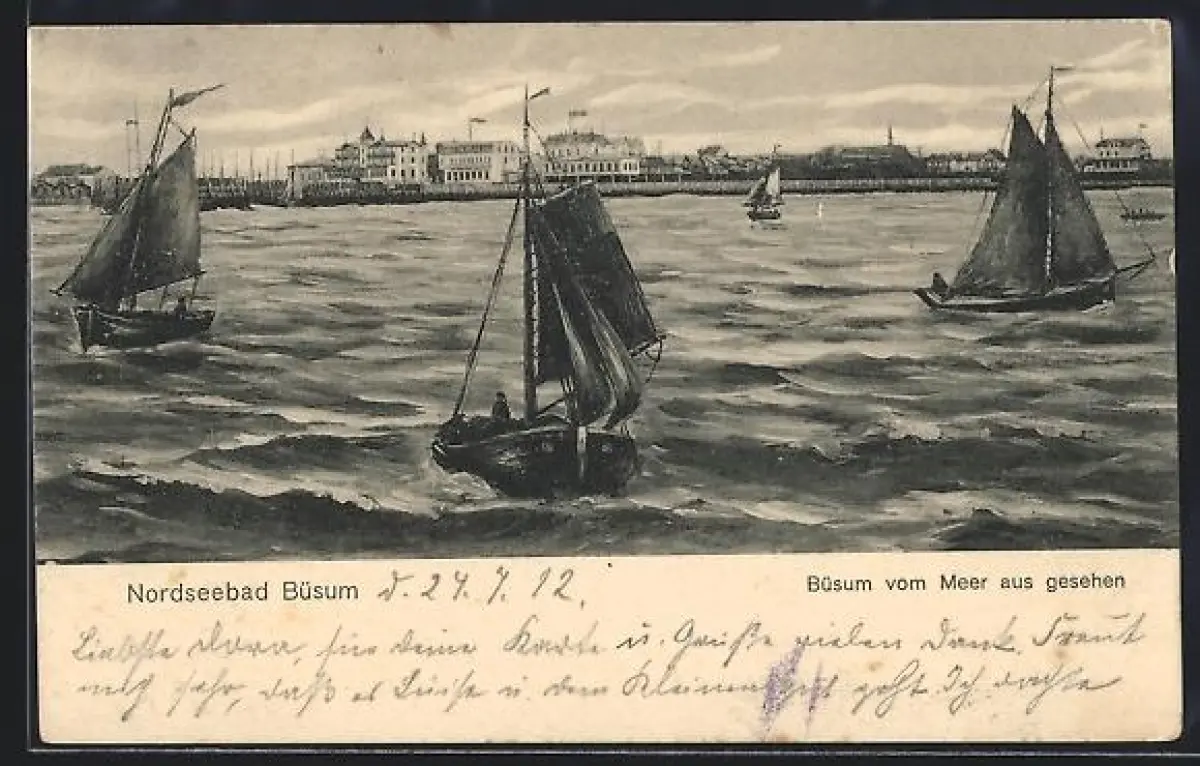 Nordseebad Büsum d. 24.7.12.
Büsum vom Meer aus gesehen
Liebste Dora, für deine Karte u. Grüße vielen Dank. Freut
mich sehr, daß es Luise u. dem Kleinen gut geht. Ich dachte